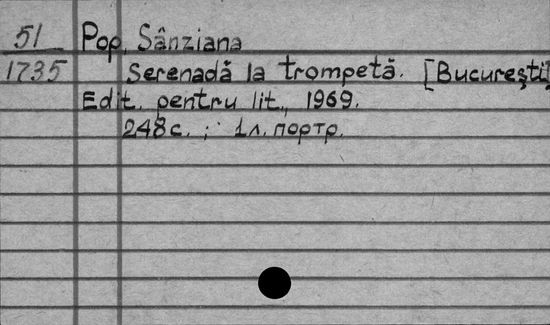 51 Pop, Sânziana
1735 Serenadă la trompetă. [București]
Edit. pentru lit., 1969.
248 с. ; 1 л. портр.